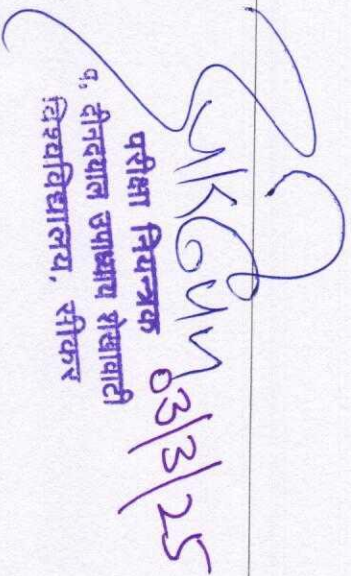 03/3/25
परीक्षा नियन्त्रक
पं. दीनदयाल उपाध्याय शेखावाटी
विश्वविद्यालय, सीकर